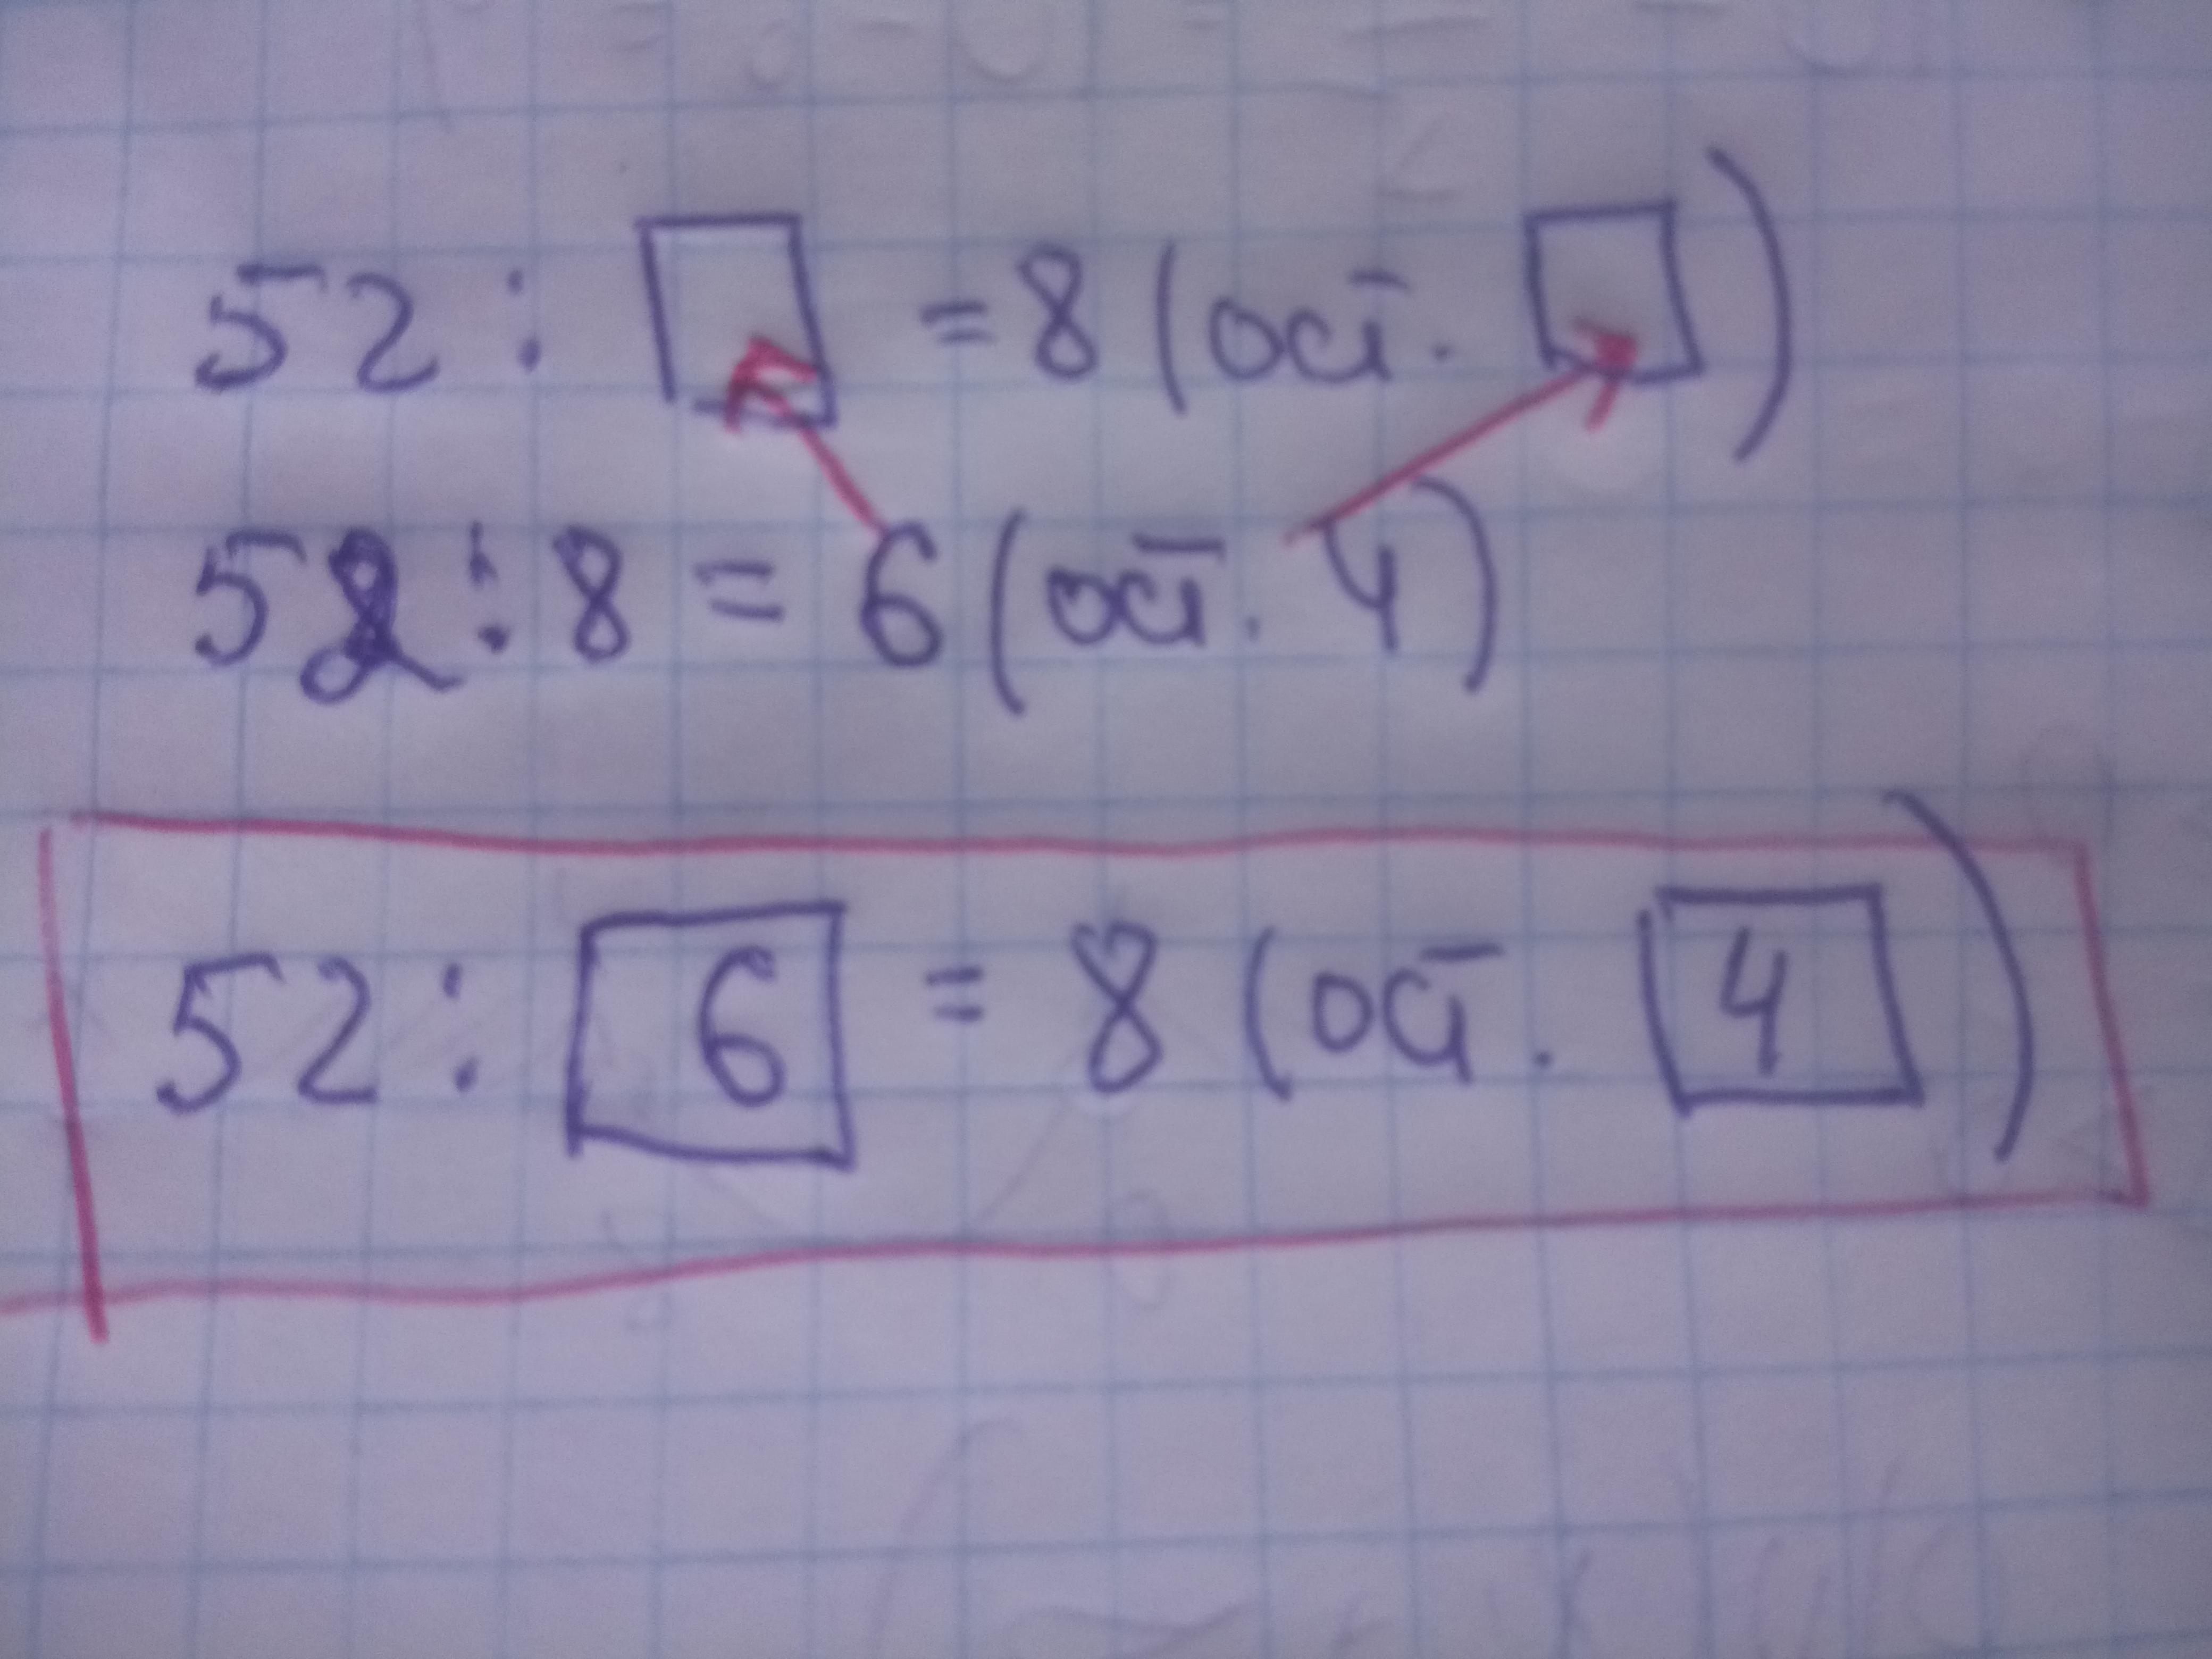 52 : □ = 8 (ост. □)
52 : 8 = 6 (ост. 4)
52 : 6 = 8 (ост. 4)